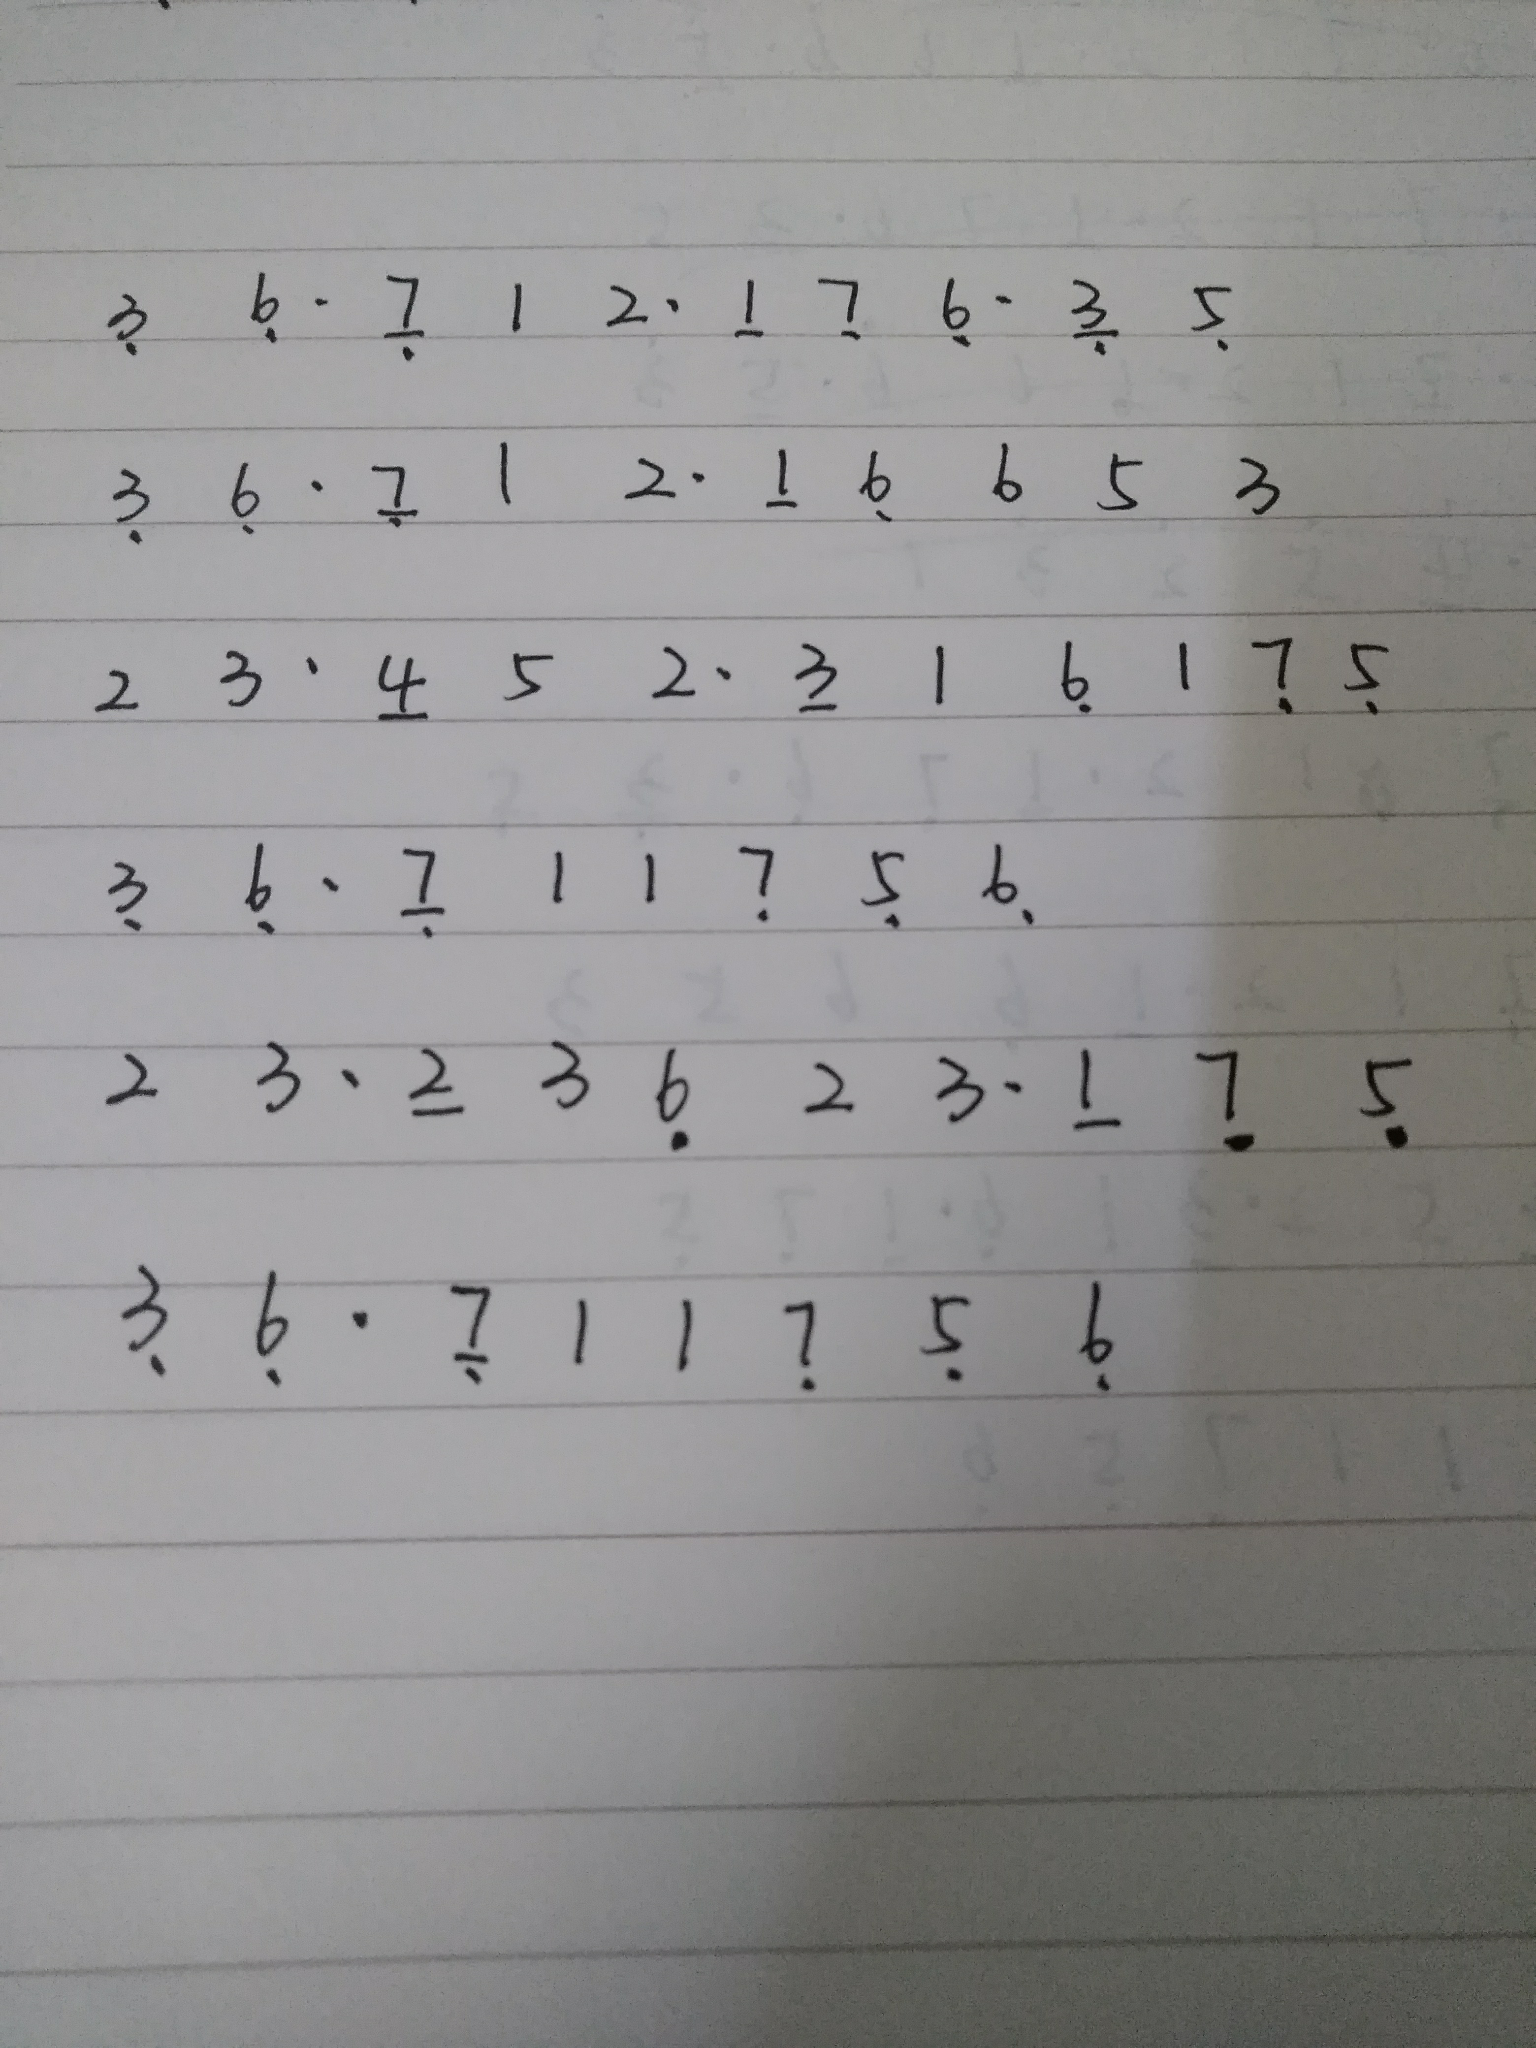 3̣ 6̣ · 7̲̣ 1 2 · 1̲ 7̣ 6̣ · 3̲̣ 5̣
3̣ 6̣ · 7̲̣ 1 2 · 1̲ 6̣ 6 5 3
2 3 · 4̲ 5 2 · 3̲ 1 6̣ 1 7̣ 5̣
3̣ 6̣ · 7̲̣ 1 1 7̣ 5̣ 6̣
2 3 · 2̲ 3 6̣ 2 3 · 1̲ 7̣ 5̣
3̣ 6̣ · 7̲̣ 1 1 7̣ 5̣ 6̣